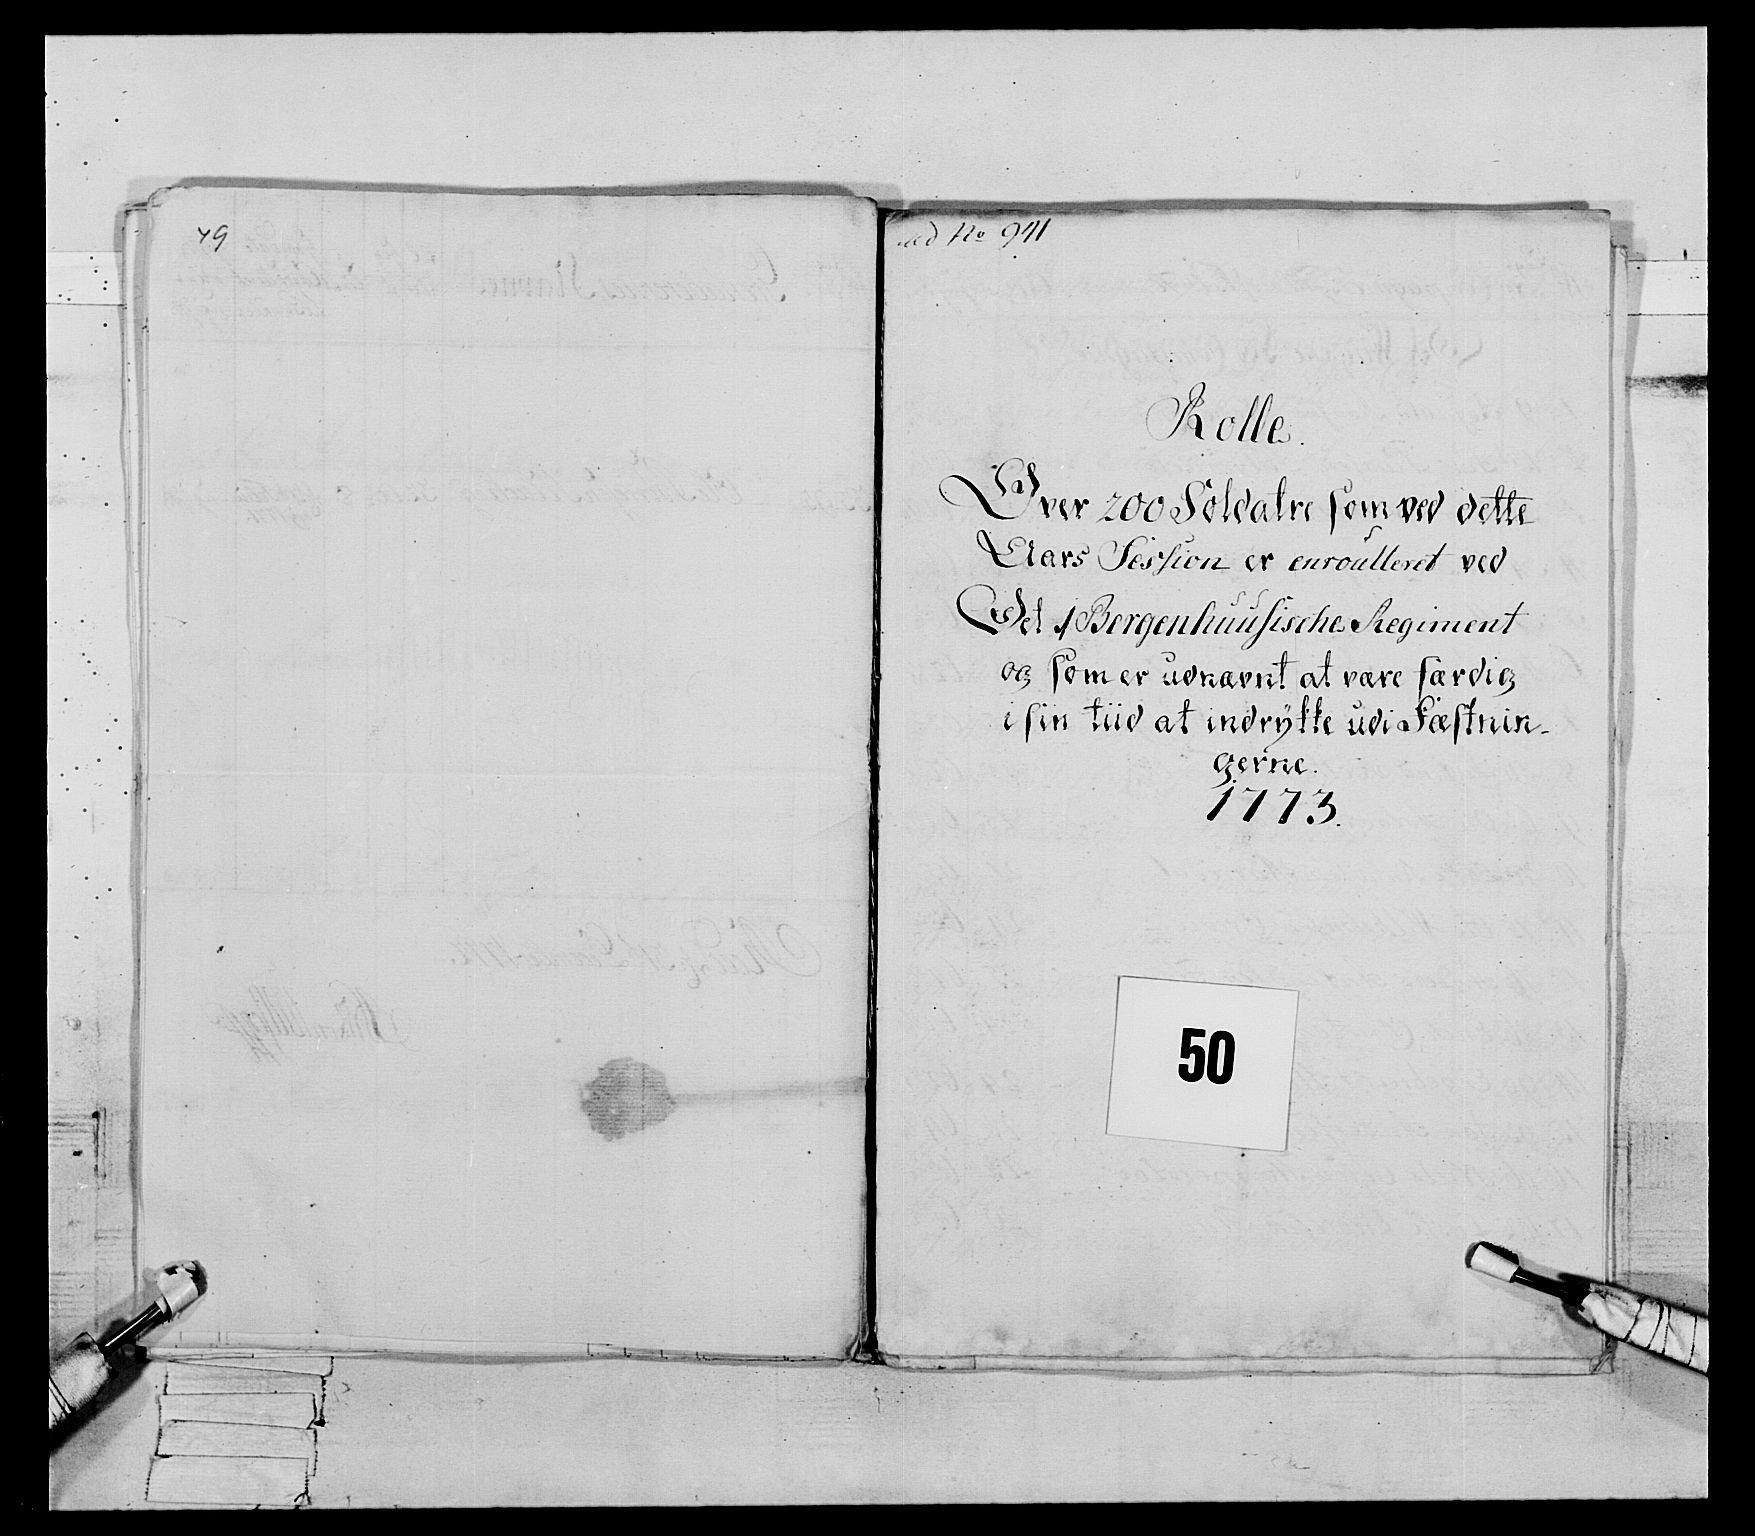 49
ad No 941
Rolle.
Over 200 Soldatre som ved dette
Aars Session er enroulleret ved
Det 1 Bergenhuusische Regiment
og som er udnævnt at være færdig
i sin tiid at indrykke udi Fæstnin-
gerne.
1773.
50